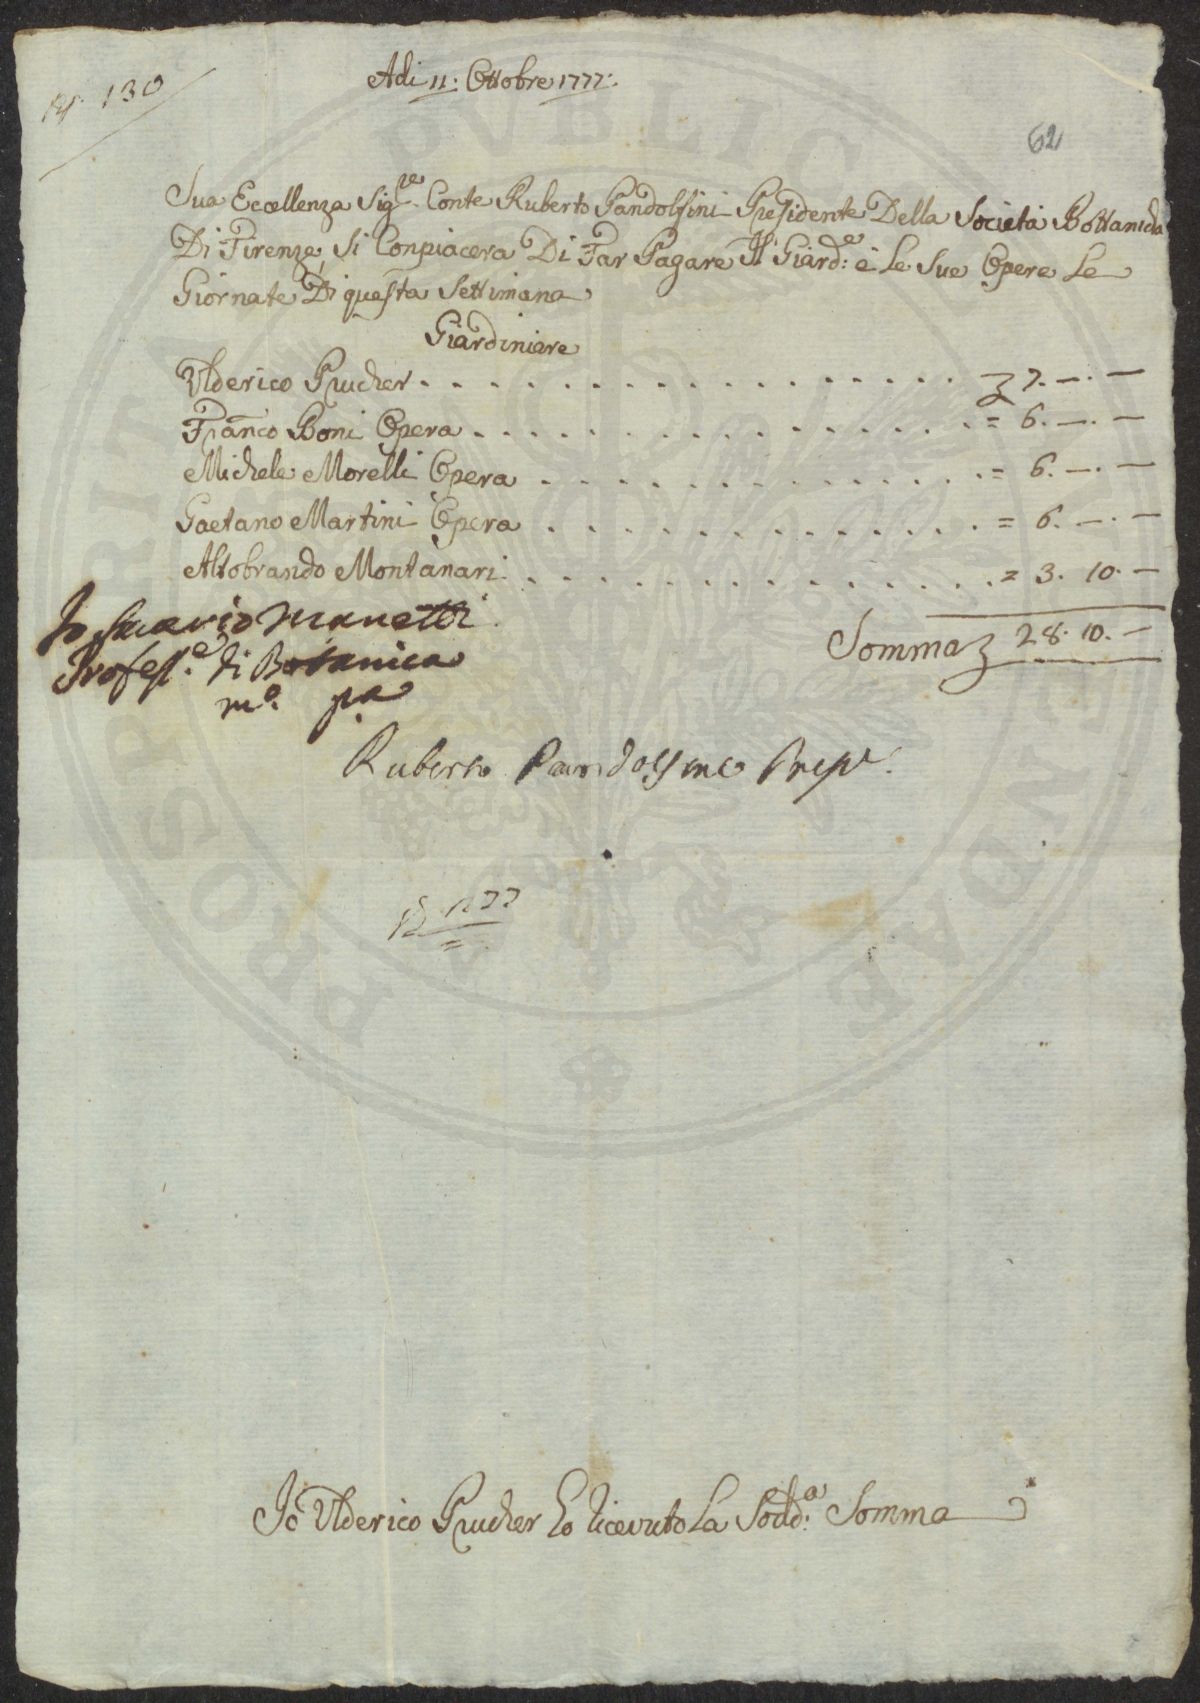 N.° 130
Adi 11: Ottobre 1777:
62
Sua Eccellenza Sig.re Conte Ruberto Pandolfini Presidente Della Società Bottanicha
Di Firenze, Si Conpiacera Di Far Pagare Il Giard:e e Le Sue Opere Le
Giornate Di questa Settimana
Giardiniere
Ulderico Prucher . . . . . . . . . . . . . . . . 7. —. —
Franco Boni Opera . . . . . . . . . . . . . . = 6. —. —
Michele Morelli Opera . . . . . . . . . . . . = 6. —. —
Gaetano Martini Opera . . . . . . . . . . . . = 6. —. —
Altobrando Montanari . . . . . . . . . . . . . = 3. 10. —
Somma 28. 10. —
Io Saverio Manetti
Profess.e di Botanica
m.o pa
Ruberto Pandolfini Presi.
PROSPERITATI PVBLICAE AVGENDAE
Io Ulderico Prucher Ho Ricevuto La Sodd:a Somma